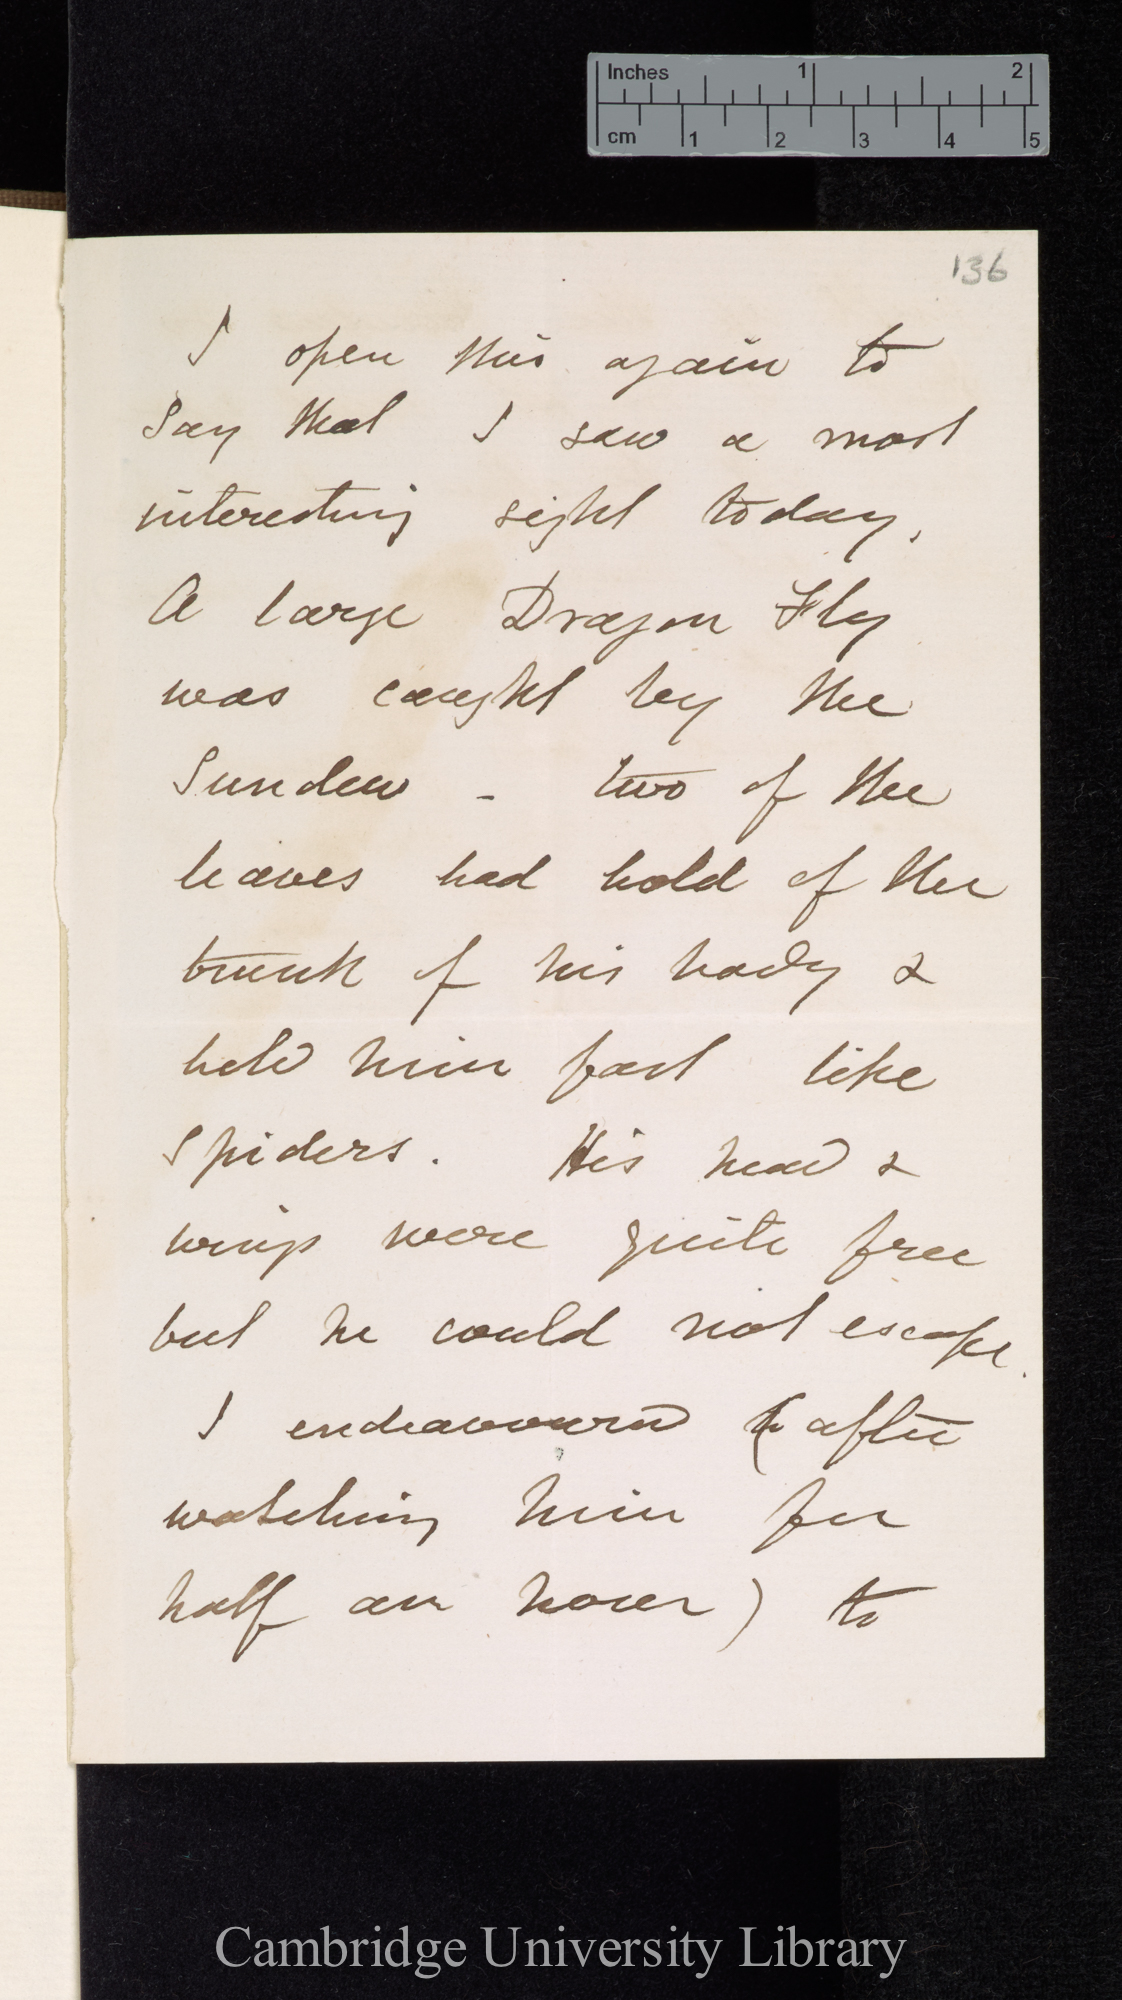 Inches 1 2
cm 1 2 3 4 5
136
I open this again to
say that I saw a most
interesting sight today.
A large Dragon Fly
was caught by the
Sundew - two of the
leaves had hold of the
trunk of his body &
held him fast like
spiders. His head &
wings were quite free
but he could not escape.
I endeavoured (after
watching him for
half an hour) to
Cambridge University Library